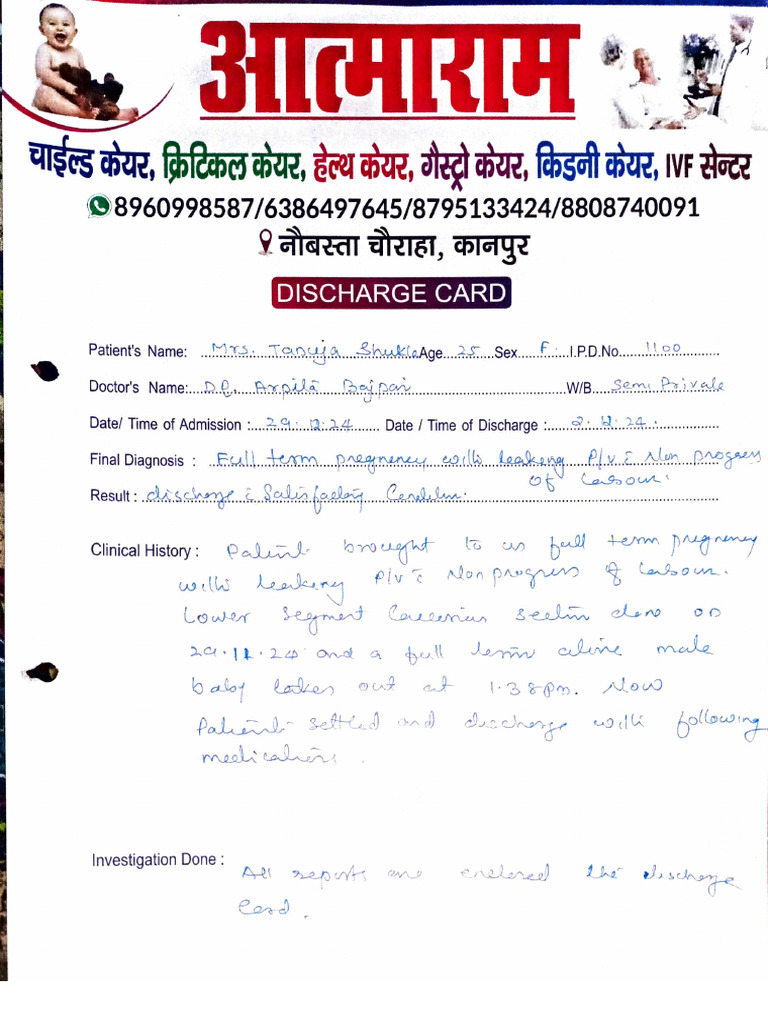 आत्माराम
चाईल्ड केयर, क्रिटिकल केयर, हेल्थ केयर, गैस्ट्रो केयर, किडनी केयर, IVF सेन्टर
8960998587/6386497645/8795133424/8808740091
नौबस्ता चौराहा, कानपुर
DISCHARGE CARD
Patient's Name: Mrs. Tanuja Shukla Age 25 Sex F. I.P.D.No. 1100
Doctor's Name: DR. Arpita Bajpai W/B Semi Private
Date/ Time of Admission : 29.11.24 Date / Time of Discharge : 2.12.24.
Final Diagnosis : Full term pregnency with leaking P/v c̄ Non progress
of Labour.
Result : discharge c̄ Satisfactory Condition.
Clinical History : Patient brought to us full term pregnency
with leaking P/v c̄ Non progress of Labour.
Lower Segment section done on
29.11.24 and a full term alive male
baby takes out at 1.38pm. Now
Patient settled and discharge with following
medications.
Investigation Done : All reports are enclored the discharge
Card.